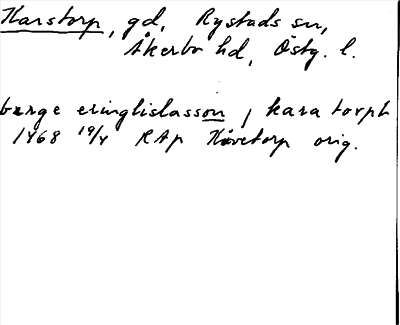 Karstorp, gd, Rystads sn,
Åkerbo hd, Östg. l.
børge eringhislasson, kara torph
1468 19/4 RAp Håvetorp orig.